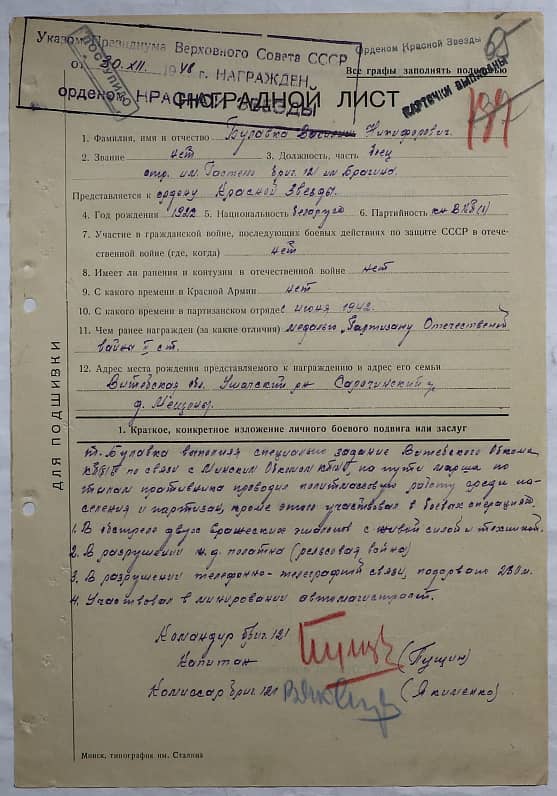 Указом Президиума Верховного Совета СССР
от 30.XII. 1948 г. НАГРАЖДЕН
орденом КРАСНОЙ ЗВЕЗДЫ
ПОСТУПИЛО
Орденом Красной Звезды
Все графы заполнять полностью
КАРТОЧКИ ВЫПИСАНЫ
НАГРАДНОЙ ЛИСТ
1. Фамилия, имя и отчество Булавка Василий Никифорович.
2. Звание нет 3. Должность, часть боец
отр. им. Гастелло бриг. 121 им. Брагина.
Представляется к ордену Красной Звезды.
4. Год рождения 1922 5. Национальность беларус 6. Партийность кн ВКП(б)
7. Участие в гражданской войне, последующих боевых действиях по защите СССР в отече-
ственной войне (где, когда) нет
8. Имеет ли ранения и контузии в отечественной войне нет
9. С какого времени в Красной Армии нет
10. С какого времени в партизанском отряде с июня 1942.
11. Чем ранее награжден (за какие отличия) медалью "Партизану Отечественной
войны II ст.
12. Адрес места рождения представляемого к награждению и адрес его семьи
Витебская обл. Ушачский р-н Сарочинский
д. Мещоны.
ДЛЯ ПОДШИВКИ
1. Краткое, конкретное изложение личного боевого подвига или заслуг
т. Булавка выполняя специальное задание Витебского Обкома
КП(б)Б по связи с Минским Обкомом КП(б)Б, по пути марша по
тылам противника проводил политмассовую работу среди на-
селения и партизан, кроме этого участвовал в боевых операциях:
1. В обстреле двух вражеских эшалонов с живой силой и техникой.
2. В разрушении ж.д. полотна (рельсовая война)
3. В разрушении телефонно-телеграфной связи, подорвано 280 м.
4. Участвовал в минировании автомагистралей.
Командир бриг. 121
Капитан (Пущин)
Комиссар бриг. 121 (Якименко)
Минск, типография им. Сталина